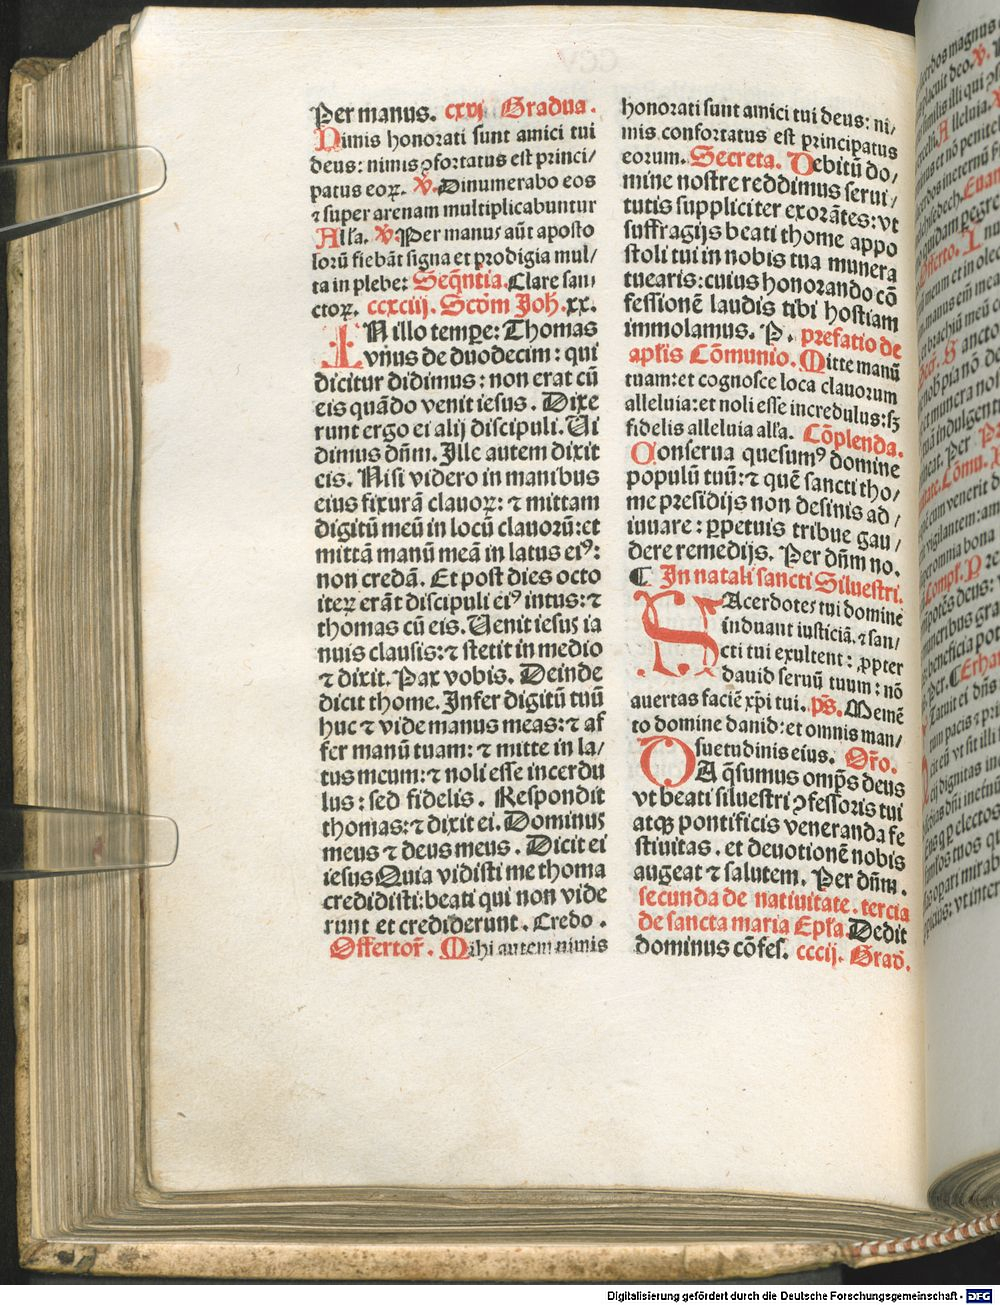 Per manus. cxvj Gradua.
Nimis honorati sunt amici tui
deus: nimis ꝯfortatus est princi/
patus eoꝝ. ℣. Dinumerabo eos
⁊ super arenam multiplicabuntur
Alĺa. ℣. Per manus aūt aposto
lorū fiebāt signa et prodigia mul/
ta in plebe: Seq̄ntia. Clare san/
ctoꝝ. ccxciij. Scḋm Joh. xx.
IN illo tempꝛe: Thomas
vnus de duodecim: qui
dicitur didimus: non erat cū
eis quādo venit iesus. Dixe
runt ergo ei alij discipuli. Ui
dimus dn̄m. Ille autem dixit
eis. Nisi videro in manibus
eius fixurā clauoꝝ: ⁊ mittam
digitū meū in locū clauorū: et
mittā manū meā in latus eiꝰ:
non credā. Et post dies octo
iteꝝ erāt discipuli eiꝰ intus: ⁊
thomas cū eis. Uenit iesus ia
nuis clausis: ⁊ stetit in medio
⁊ dixit. Pax vobis. Deinde
dicit thome. Infer digitū tuū
huc ⁊ vide manus meas: ⁊ af
fer manū tuam: ⁊ mitte in la/
tus meum: ⁊ noli esse incerdu
lus: sed fidelis. Respondit
thomas: ⁊ dixit ei. Dominus
meus ⁊ deus meus. Dicit ei
iesus Quia vidisti me thoma
credidisti: beati qui non vide
runt et crediderunt. Credo.
Offertoꝝ. Mihi autem nimis
honorati sunt amici tui deus: ni/
mis confortatus est principatus
eorum. Secreta. Debitū do/
mine nostre reddimus serui/
tutis suppliciter exorātes: vt
suffragijs beati thome appo
stoli tui in nobis tua munera
tuearis: cuius honorando cō
fessionē laudis tibi hostiam
immolamus. P. prefatio de
aplis Cōmunio. Mitte manū
tuam: et cognosce loca clauorum
alleluia: et noli esse incredulus: sꝫ
fidelis alleluia alĺa. Cōplenda.
Conserua quesumꝰ domine
populū tuū: ⁊ quē sancti tho/
me presidijs non desinis ad/
iuuare: ꝑpetuis tribue gau/
dere remedijs. Per dn̄m no.
¶ In natali sancti Siluestri.
SAcerdotes tui domine
induant iusticiā. ⁊ san/
cti tui exultent: ꝓpter
dauid seruū tuum: nō
auertas faciē xp̄i tui. pˢ. Memē
to domine dauid: et omnis man/
suetudinis eius. Or̄o.
DA q̄sumus omp̄s deus
vt beati siluestri ꝯfessoris tui
atqꝫ pontificis veneranda fe
stiuitas. et deuotionē nobis
augeat ⁊ salutem. Per dn̄m.
secunda de natiuitate. tercia
de sancta maria Epl̄a. Dedit
dominus cōfes. cccij. Grad̄.
Digitalisierung gefördert durch die Deutsche Forschungsgemeinschaft - DFG